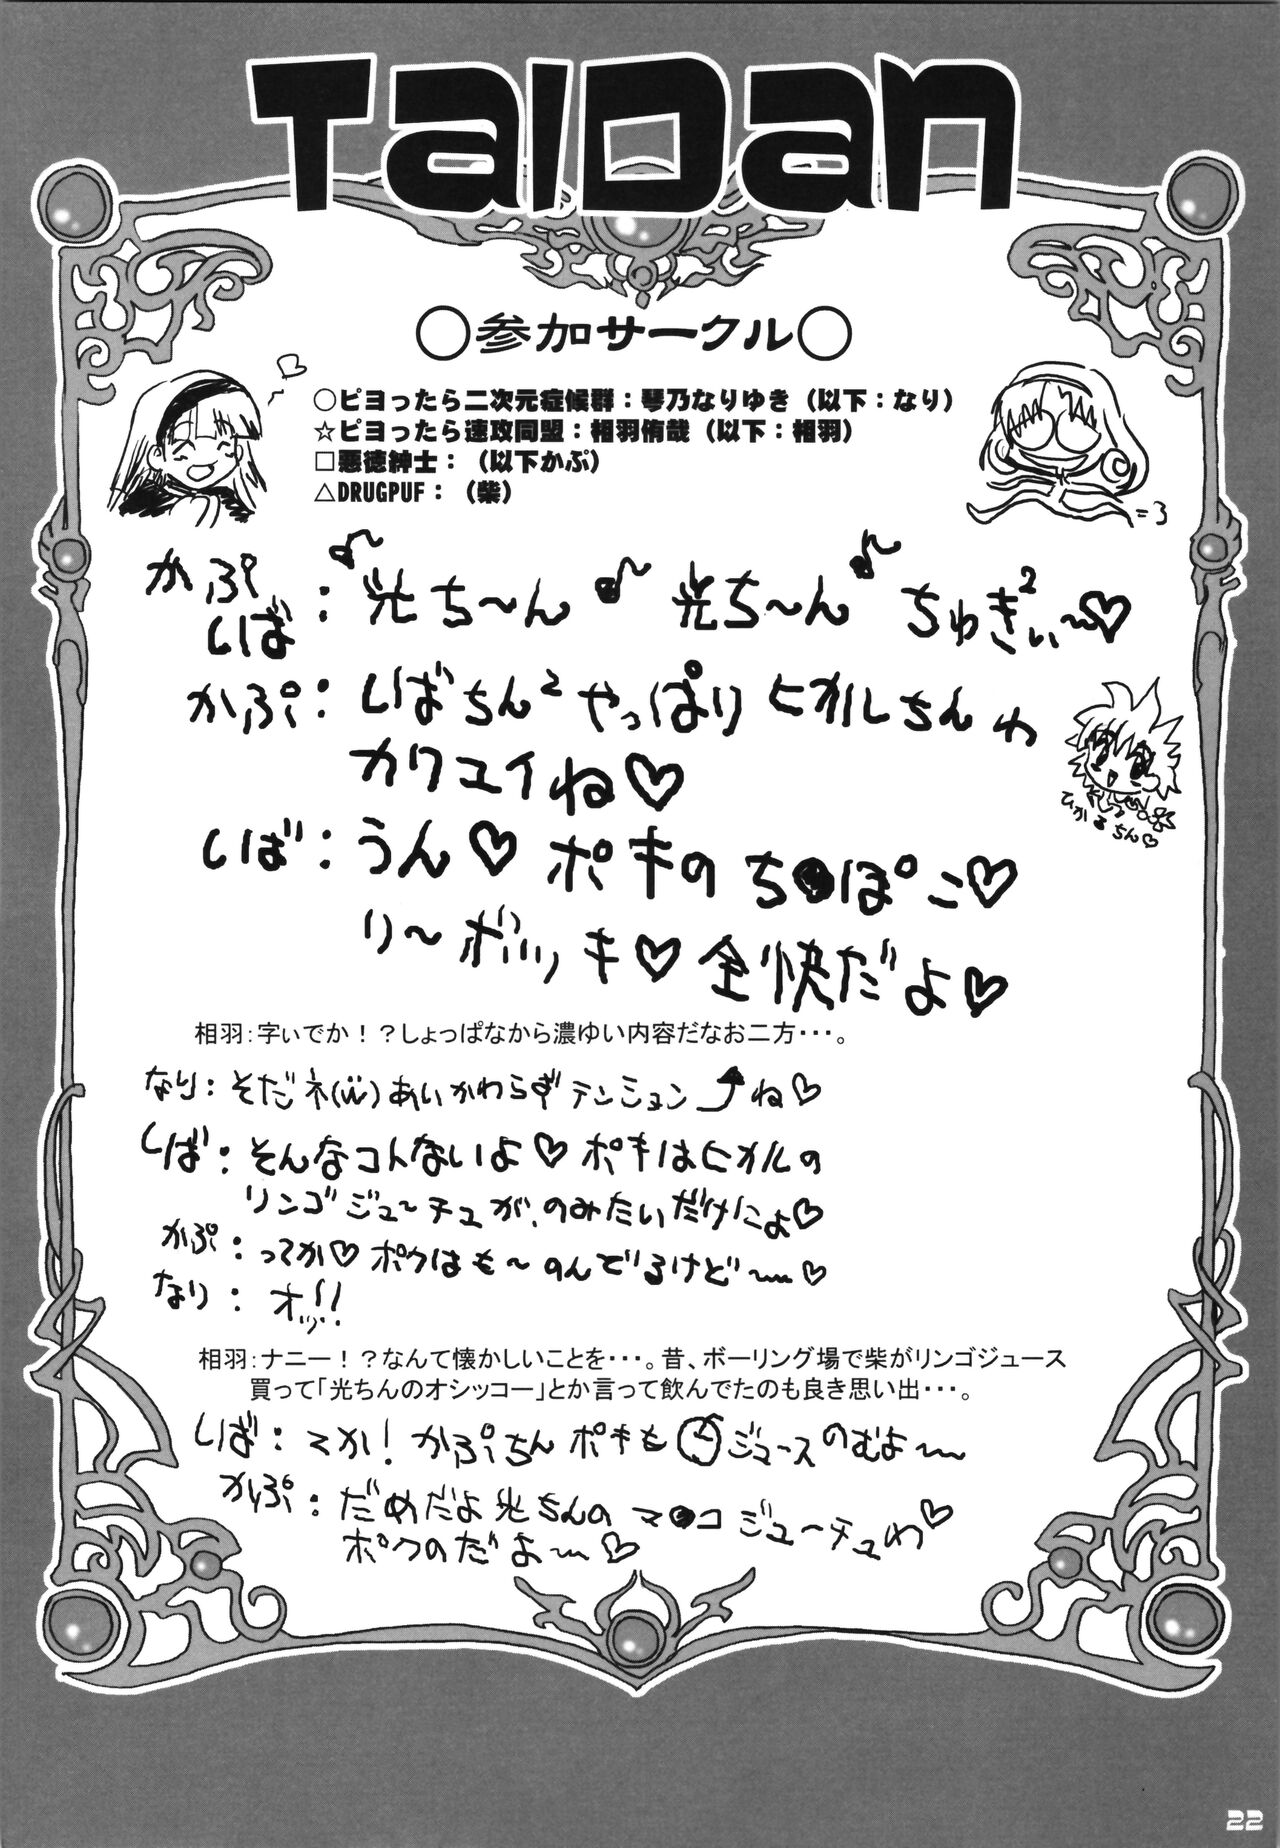 TaIDan
○参加サークル○
○ピヨったら二次元症候群：琴乃なりゆき（以下：なり）
☆ピヨったら速攻同盟：相羽侑哉（以下：相羽）
□悪徳紳士：（以下かぷ）
△DRUGPUF：（柴）
=3
かぷ
しば：♪光ち〜ん♪光ち〜ん♪ちゅきぃ²〜♡
かぷ：しばちん²やっぱりヒカルちんわ
カワユイね♡
ひかるちん♡
しば：うん♡ポキのち●ぽこ♡
リ〜ボッキ♡全快だよ♡
相羽：字ぃでか！？しょっぱなから濃ゆい内容だなお二方・・・。
なり：そだネ(w)あいかわらずテンション⤴ね♡
しば：そんなコトないよ♡ポキはヒカルの
リンゴジュ〜チュが、のみたいだけにょ♡
かぷ：ってか♡ポクはも〜のんでるけど〜♡
なり：オッ!!
相羽：ナニー！？なんて懐かしいことを・・・。昔、ボーリング場で柴がリンゴジュース
買って「光ちんのオシッコー」とか言って飲んでたのも良き思い出・・・。
しば：てか！かぷちんポキもジュースのむよ〜
かぷ：だめだよ光ちんのマ●コジュ〜チュわ♡
ポクのだよ〜♡
22